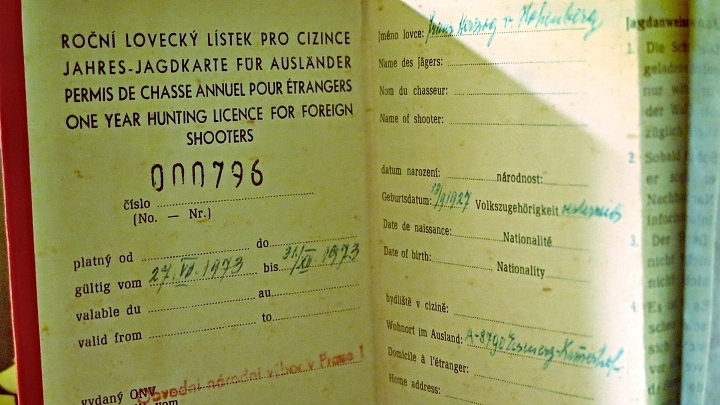 ROČNÍ LOVECKÝ LÍSTEK PRO CIZINCE
JAHRES-JAGDKARTE FÜR AUSLÄNDER
PERMIS DE CHASSE ANNUEL POUR ÉTRANGERS
ONE YEAR HUNTING LICENCE FOR FOREIGN
SHOOTERS
000796
číslo
(No. — Nr.)
platný od do
gültig vom 27. VII. 1973 bis 31/XII 1973
valable du au
valid from to
vydaný ONV
Obvodní národní výbor v Praze 1
Jméno lovce: Franz Herzog v. Hohenberg
Name des Jägers:
Nom du chasseur:
Name of shooter:
datum narození: národnost:
Geburtsdatum: 13/9 1927 Volkszugehörigkeit
Date de naissance: Nationalité
Date of birth: Nationality
bydliště v cizině:
Wohnort im Ausland: A-8790 Eisenerz-
Domicile à l'étranger:
Home address:
Jagdanweis
1. Die Sch
gelade
nur
der W
züglic
2. Sobald
er
Nachb
inform
3. Der
nicht
nicht
4. Es